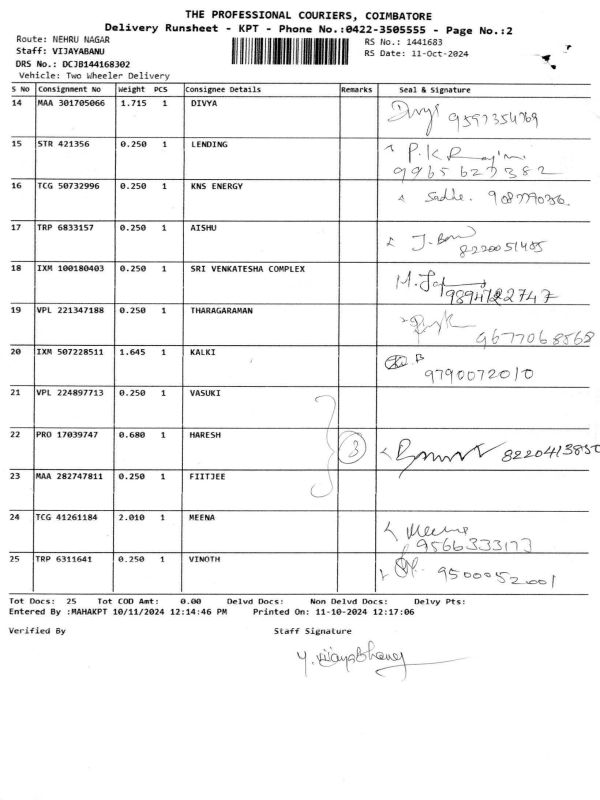 THE PROFESSIONAL COURIERS, COIMBATORE
Delivery Runsheet - KPT - Phone No.:0422-3505555 - Page No.:2
Route: NEHRU NAGAR RS No.: 1441683
Staff: VIJAYABANU RS Date: 11-Oct-2024
DRS No.: DCJB144168302
Vehicle: Two Wheeler Delivery
S No Consignment No Weight PCS Consignee Details Remarks Seal & Signature
14 MAA 301705066 1.715 1 DIVYA Divya 9597354769
15 STR 421356 0.250 1 LENDING P.K
9965627382
16 TCG 50732996 0.250 1 KNS ENERGY
17 TRP 6833157 0.250 1 AISHU
8220051485
18 IXM 100180403 0.250 1 SRI VENKATESHA COMPLEX
19 VPL 221347188 0.250 1 THARAGARAMAN
9677068568
20 IXM 507228511 1.645 1 KALKI
9790072010
21 VPL 224897713 0.250 1 VASUKI
22 PRO 17039747 0.680 1 HARESH 3 8220413850
23 MAA 282747811 0.250 1 FIITJEE
24 TCG 41261184 2.010 1 MEENA Meena
9566333173
25 TRP 6311641 0.250 1 VINOTH 9500052001
Tot Docs: 25 Tot COD Amt: 0.00 Delvd Docs: Non Delvd Docs: Delvy Pts:
Entered By :MAHAKPT 10/11/2024 12:14:46 PM Printed On: 11-10-2024 12:17:06
Verified By Staff Signature